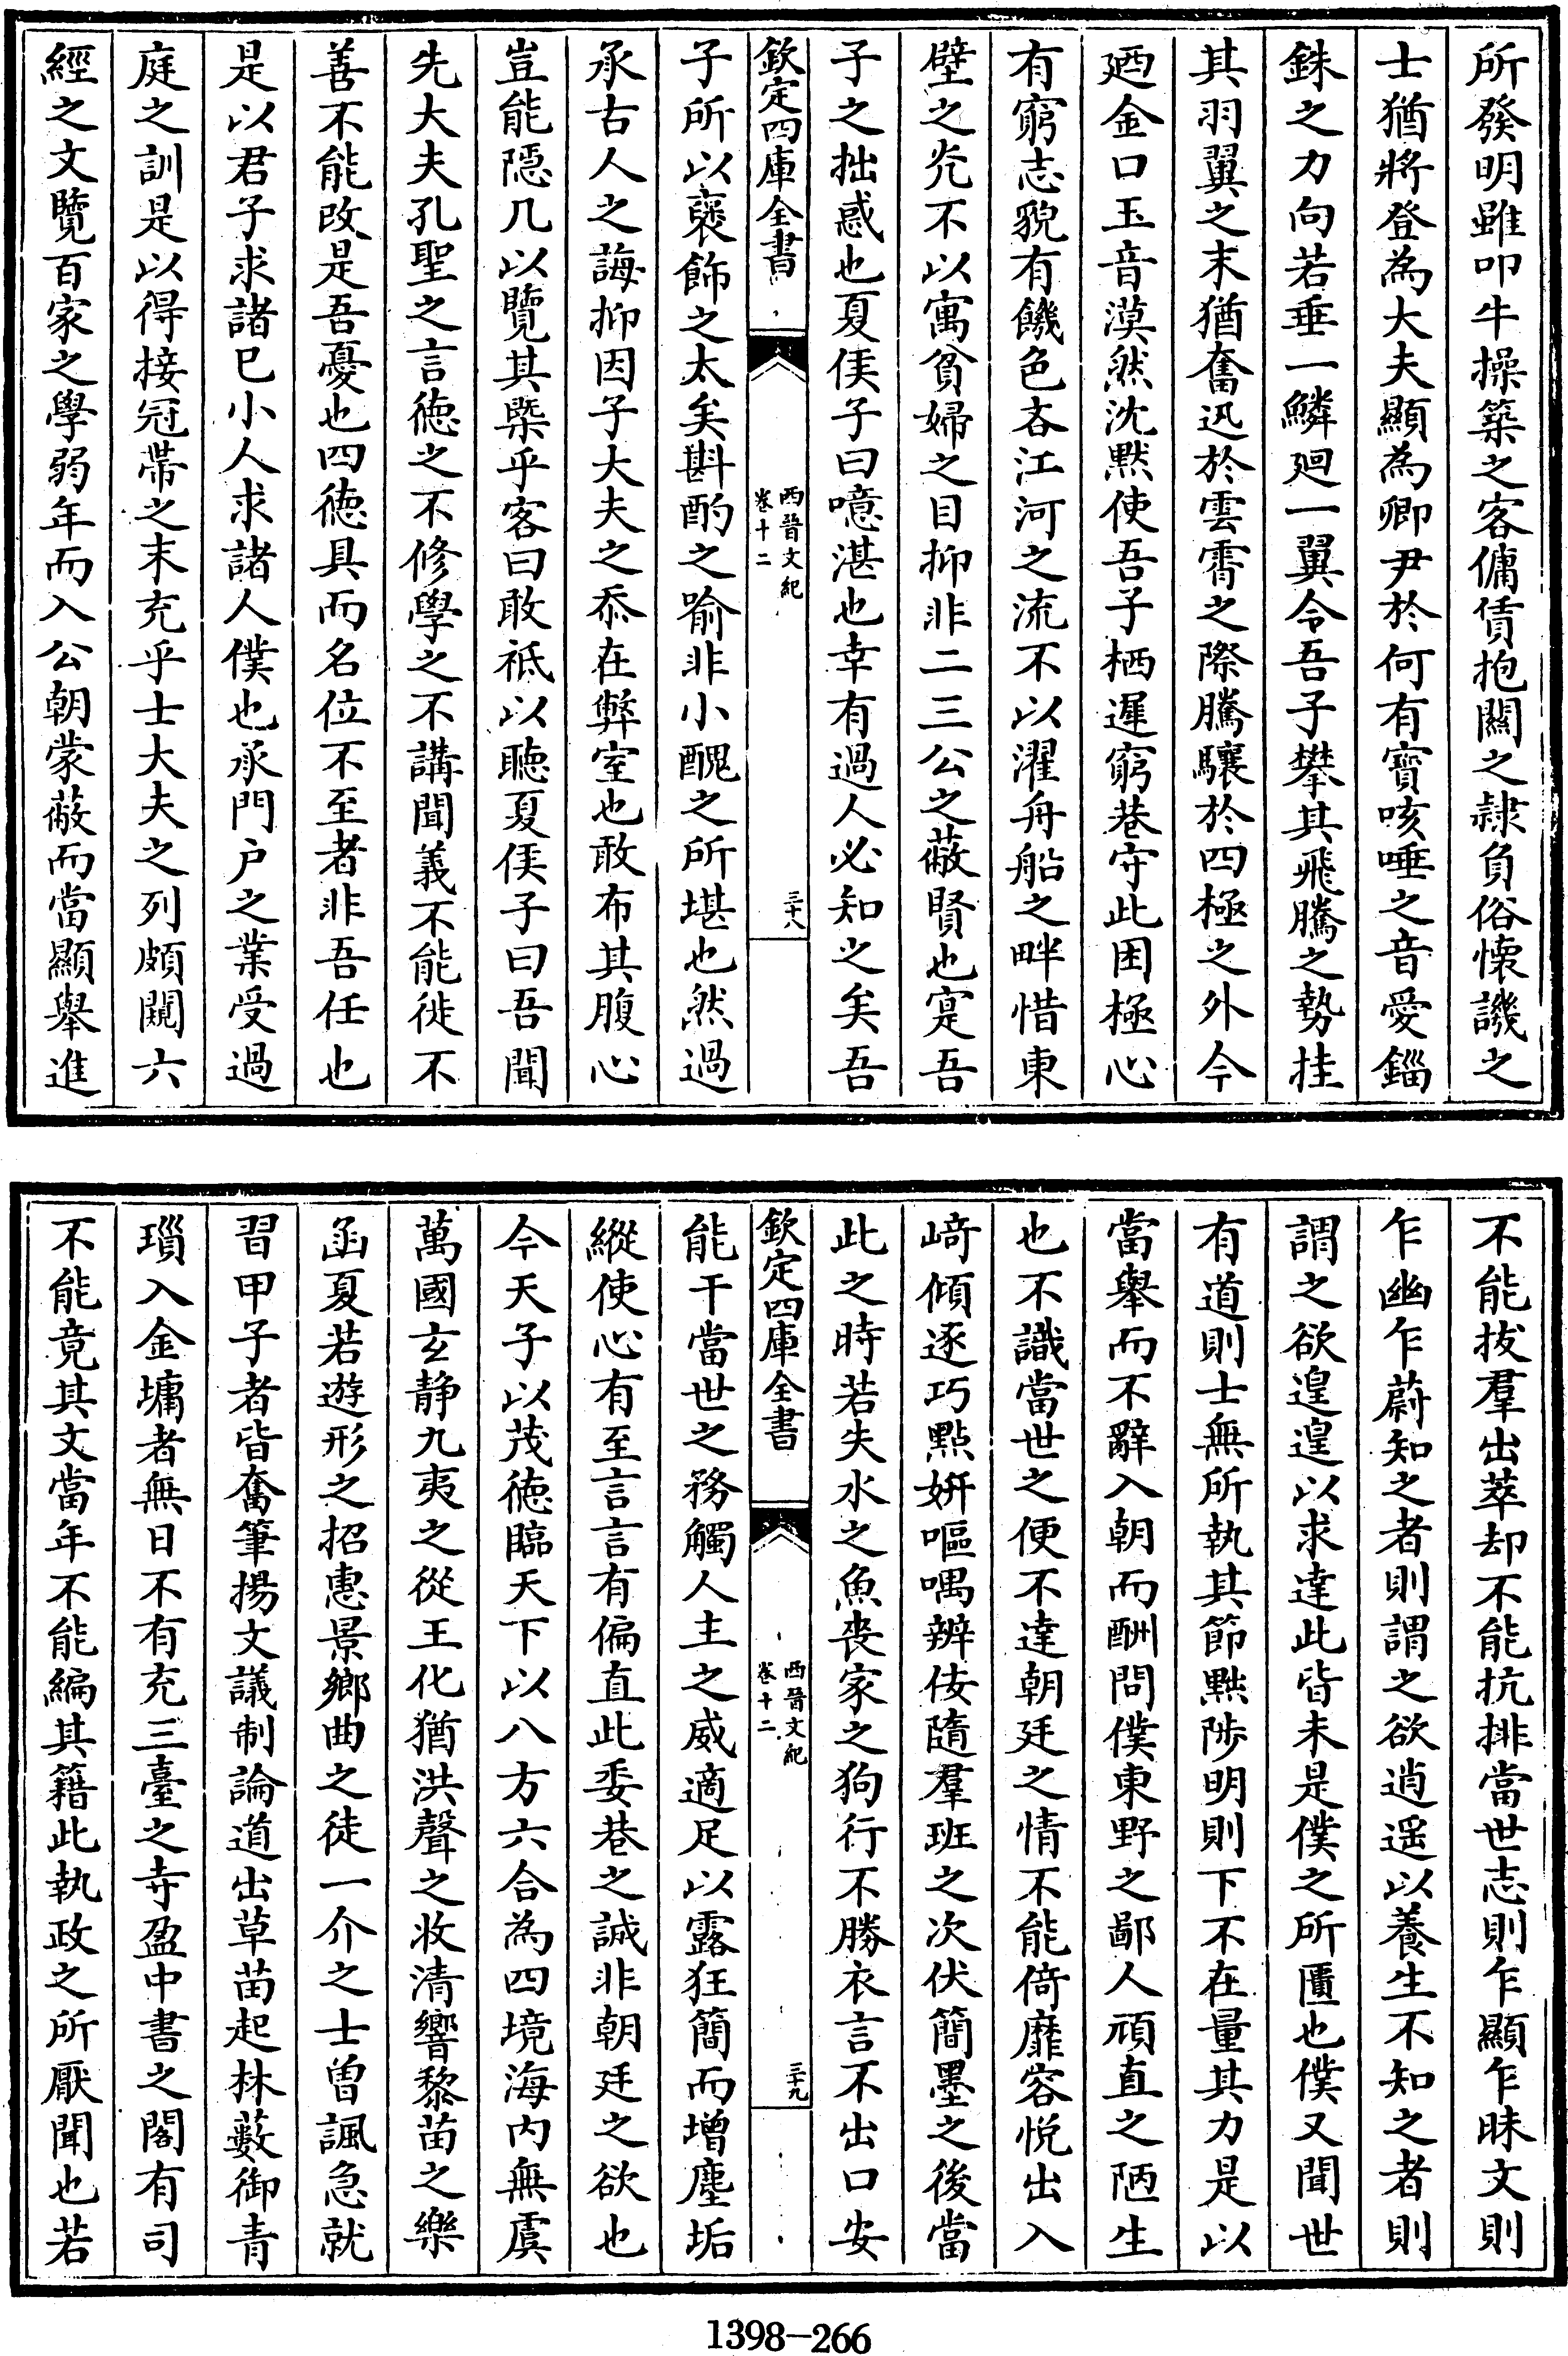 所發明雖叩牛操築之客傭賃抱關之隷負俗懷譏之
士猶將登為大夫顯為卿尹於何有寳咳唾之音愛錙
銖之力向若垂一鱗廻一翼令吾子攀其飛騰之勢挂
其羽翼之末猶奮迅於雲霄之際騰驤於四極之外今
廼金口玉音漠然沈黙使吾子栖遲窮巷守此困極心
有窮志貌有饑色吝江河之流不以濯舟船之畔惜東
壁之光不以寓貧婦之目抑非二三公之蔽賢也寔吾
子之拙惑也夏侯子曰噫湛也幸有過人必知之矣吾
欽定四庫全書
西晉文紀
卷十二
三十八
子所以褒飾之太矣斟酌之喻非小醜之所堪也然過
承古人之誨抑因子大夫之忝在弊室也敢布其腹心
豈能隱几以覽其槩乎客曰敢祗以聴夏侯子曰吾聞
先大夫孔聖之言徳之不修學之不講聞義不能徙不
善不能改是吾憂也四徳具而名位不至者非吾任也
是以君子求諸已小人求諸人僕也承門户之業受過
庭之訓是以得接冠帶之末充乎士大夫之列頗闚六
經之文覽百家之學弱年而入公朝蒙蔽而當顯舉進
不能拔羣出萃却不能抗排當世志則乍顯乍昧文則
乍幽乍蔚知之者則謂之欲逍遥以養生不知之者則
謂之欲遑遑以求達此皆未是僕之所匱也僕又聞世
有道則士無所執其節黜陟明則下不在量其力是以
當舉而不辭入朝而酬問僕東野之鄙人頑直之陋生
也不識當世之便不達朝廷之情不能倚靡容悦出入
崎傾逐巧點妍嘔喁辨佞隨羣班之次伏簡墨之後當
此之時若失水之魚喪家之狗行不勝衣言不出口安
欽定四庫全書
西晉文紀
卷十二
三十九
能干當世之務觸人主之威適足以露狂簡而增塵垢
縱使心有至言言有偏直此委巷之誠非朝廷之欲也
今天子以茂徳臨天下以八方六合為四境海内無虞
萬國玄静九夷之從王化猶洪聲之收清響黎苗之樂
函夏若遊形之招恵景鄉曲之徒一介之士曽諷急就
習甲子者皆奮筆揚文議制論道出草苗起林藪御青
瑣入金墉者無日不有充三臺之寺盈中書之閣有司
不能竟其文當年不能編其籍此執政之所厭聞也若
1398-266